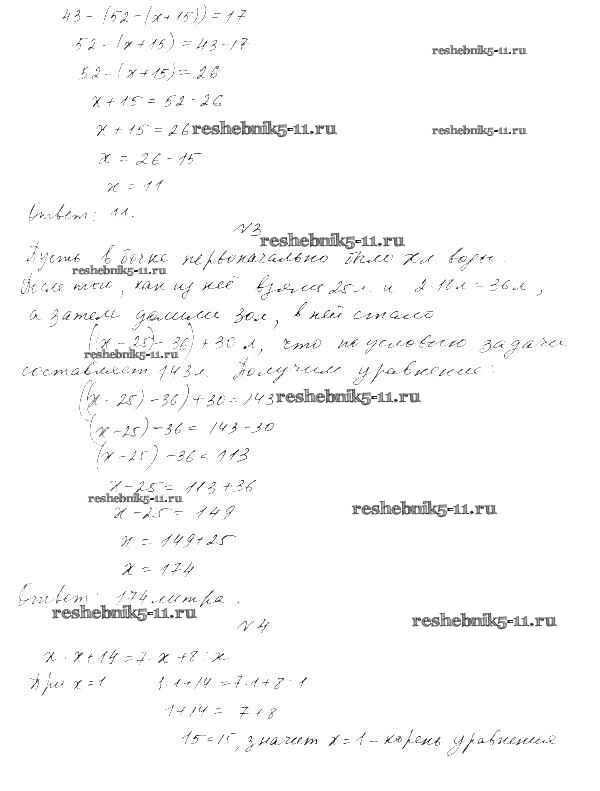 43 - (52 - (x + 15)) = 17
52 - (x + 15) = 43 - 17
reshebnik5-11.ru
52 - (x + 15) = 26
x + 15 = 52 - 26
x + 15 = 26 reshebnik5-11.ru
reshebnik5-11.ru
x = 26 - 15
x = 11
Ответ: 11.
№3
reshebnik5-11.ru
Пусть в бочке первоначально было x л воды.
reshebnik5-11.ru
После того, как из неё взяли 25 л и 2·18 л = 36 л,
а затем долили 30 л, в ней стало
((x - 25) - 36) + 30 л, что по условию задачи
reshebnik5-11.ru
составляет 143 л. Получим уравнение:
((x - 25) - 36) + 30 = 143 reshebnik5-11.ru
(x - 25) - 36 = 143 - 30
(x - 25) - 36 = 113
x - 25 = 113 + 36
reshebnik5-11.ru
x - 25 = 149
reshebnik5-11.ru
x = 149 + 25
x = 174
Ответ: 174 литра.
reshebnik5-11.ru
reshebnik5-11.ru
№4
x · x + 14 = 7 · x + 8 · x
При x = 1 1·1 + 14 = 7·1 + 8·1
1 + 14 = 7 + 8
15 = 15, значит x = 1 - корень уравнения